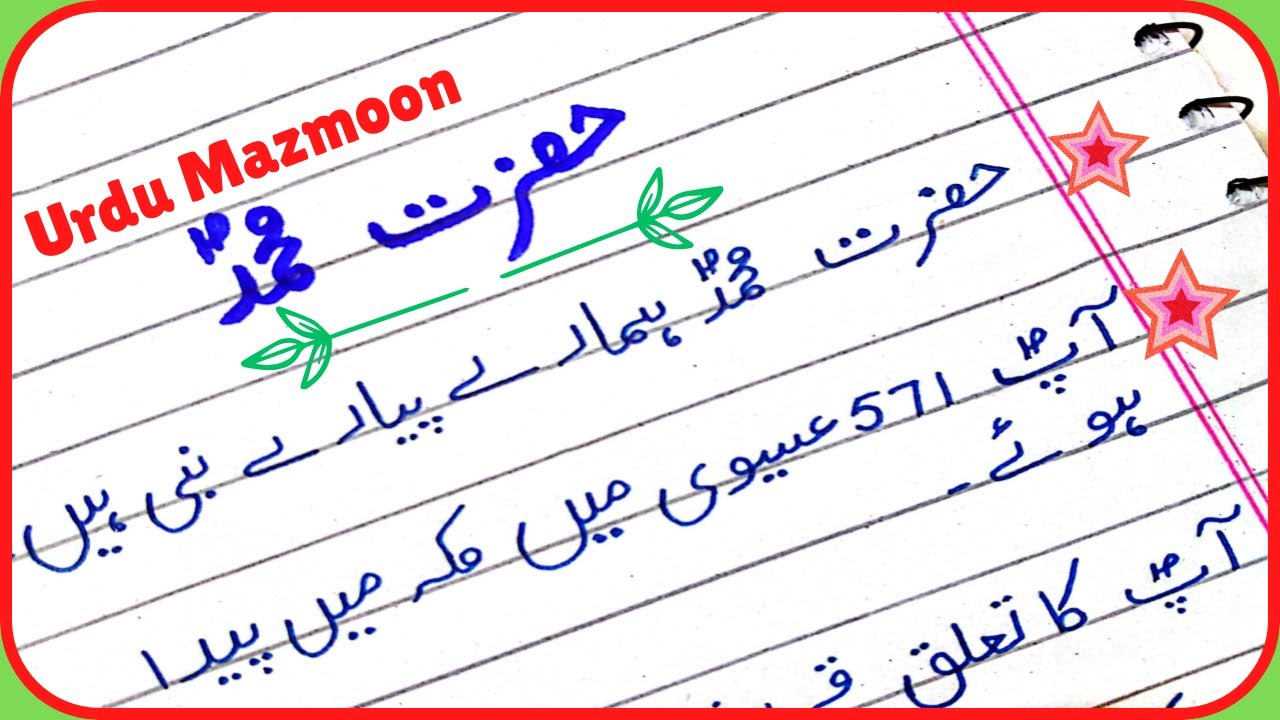 Urdu Mazmoon
حضرت محمدؐ
حضرت محمدؐ ہمارے پیارے نبی ہیں۔
آپؐ 571 عیسوی میں مکہ میں پیدا
ہوئے۔
آپؐ کا تعلق